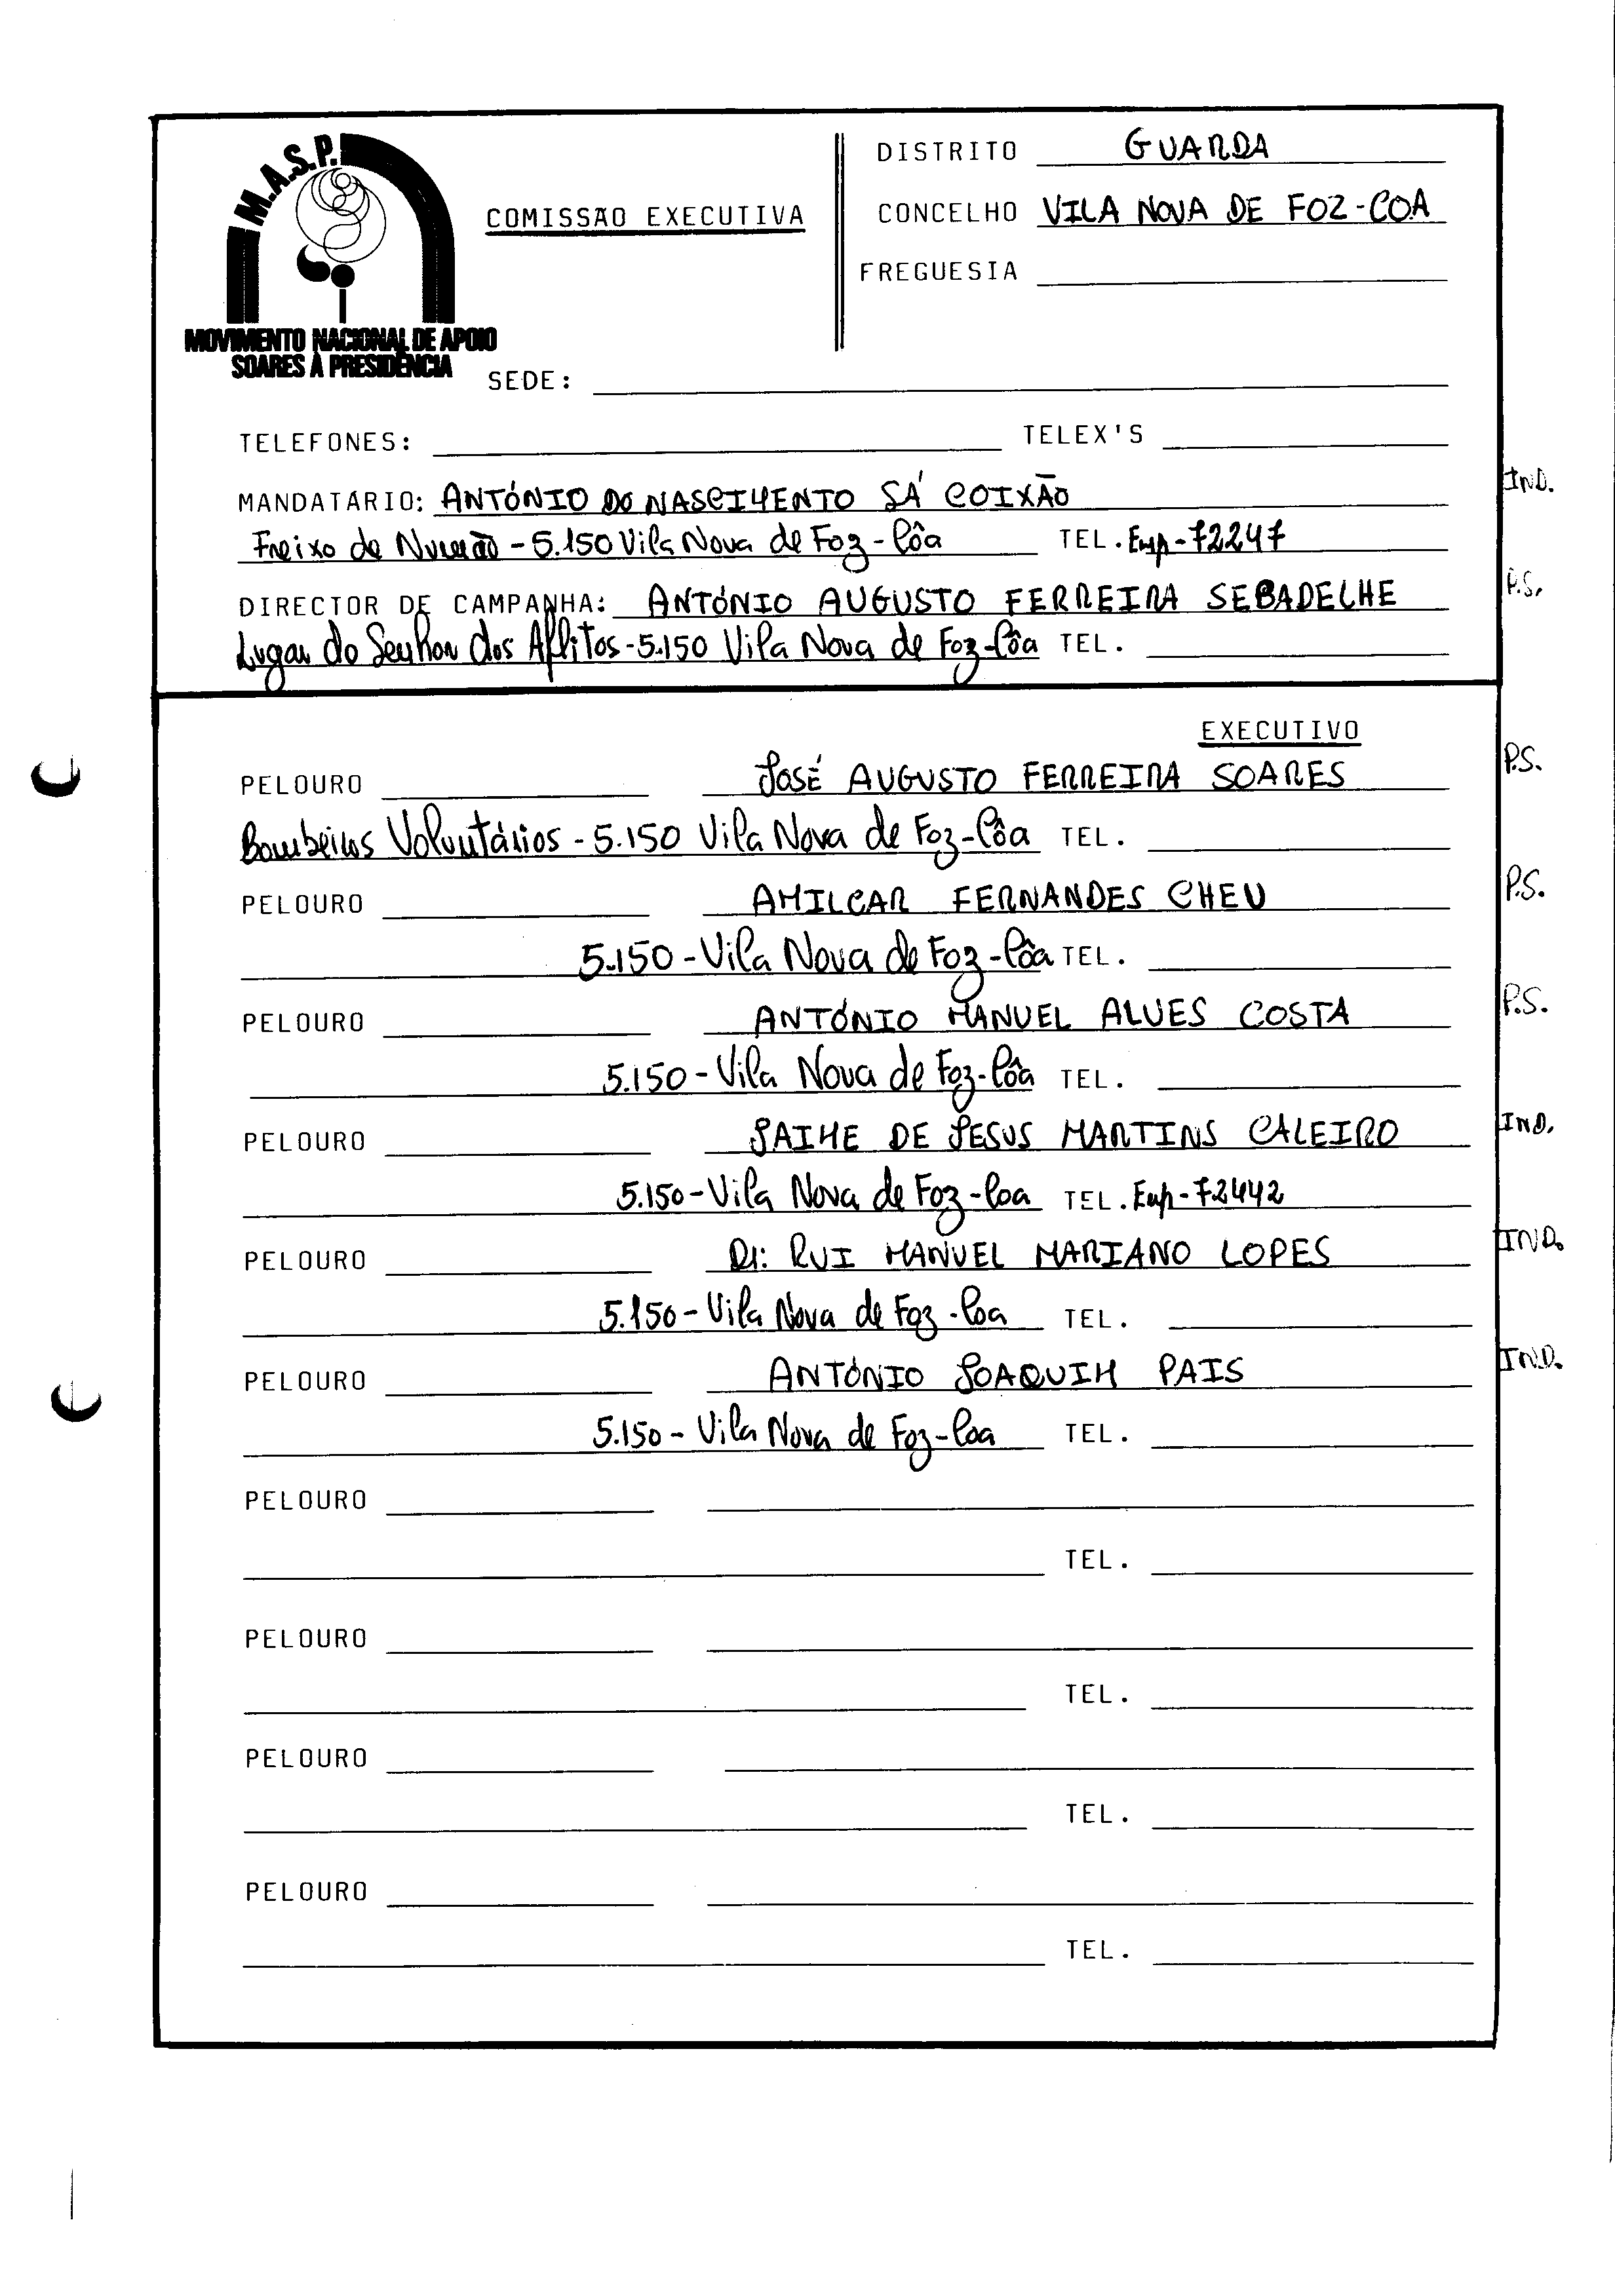 M.A.S.P.
MOVIMENTO NACIONAL DE APOIO
SOARES À PRESIDÊNCIA
COMISSÃO EXECUTIVA
DISTRITO GUARDA
CONCELHO VILA NOVA DE FOZ-COA
FREGUESIA
SEDE:
TELEFONES: TELEX'S
MANDATARIO: ANTÓNIO DO NASCIMENTO SÁ COIXÃO IND.
Freixo de Numão - 5.150 Vila Nova de Foz-Côa TEL. Emp-72247
DIRECTOR DE CAMPANHA: ANTÓNIO AUGUSTO FERREIRA SEBADELHE P.S.
Lugar do Senhor dos Aflitos-5.150 Vila Nova de Foz-Côa TEL.
EXECUTIVO
PELOURO JOSÉ AUGUSTO FERREIRA SOARES P.S.
Bombeiros Voluntários - 5.150 Vila Nova de Foz-Côa TEL.
PELOURO AMILCAR FERNANDES CHEU P.S.
5.150-Vila Nova de Foz-Côa TEL.
PELOURO ANTÓNIO MANUEL ALVES COSTA P.S.
5.150-Vila Nova de Foz-Côa TEL.
PELOURO JAIME DE JESUS MARTINS CALEIRO IND.
5.150-Vila Nova de Foz-Coa TEL. Emp-72442
PELOURO Dr: RUI MANUEL MARIANO LOPES IND.
5.150-Vila Nova de Foz-Coa TEL.
PELOURO ANTÓNIO JOAQUIM PAIS IND.
5.150-Vila Nova de Foz-Coa TEL.
PELOURO
TEL.
PELOURO
TEL.
PELOURO
TEL.
PELOURO
TEL.